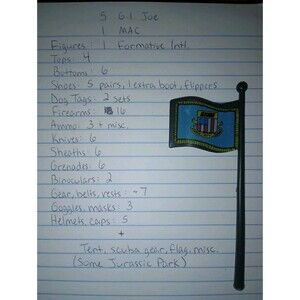 5 G.I. Joe
1 MAC
Figures: 1 Formative Intl.
Tops: 4
Bottoms: 6
Shoes: 5 pairs, 1 extra boot, flippers
Dog Tags: 2 sets
Firearms: 16
Ammo: 3 + misc.
Knives: 6
Sheaths: 6
Grenades: 6
Binoculars: 2
Gear, belts, vests: ~7
Goggles, masks: 3
Helmets, caps: 5
+
Tent, scuba gear, flag, misc.
(Some Jurassic Park)